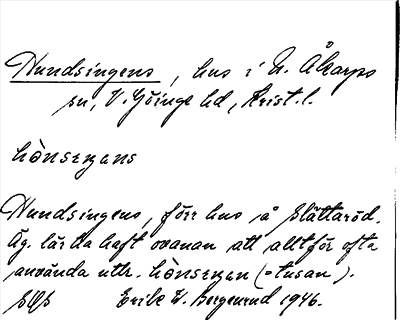 Hundsingens, hus i N. Åkarps
sn, V. Göinge hd, Krist. l.
hònsıŋans
Hundsingens, förr hus å Slättaröd.
Äg. lär ha haft ovanan att alltför ofta
använda uttr. hònsıŋan (= tusan).
Erik W. Bergenrud 1946.